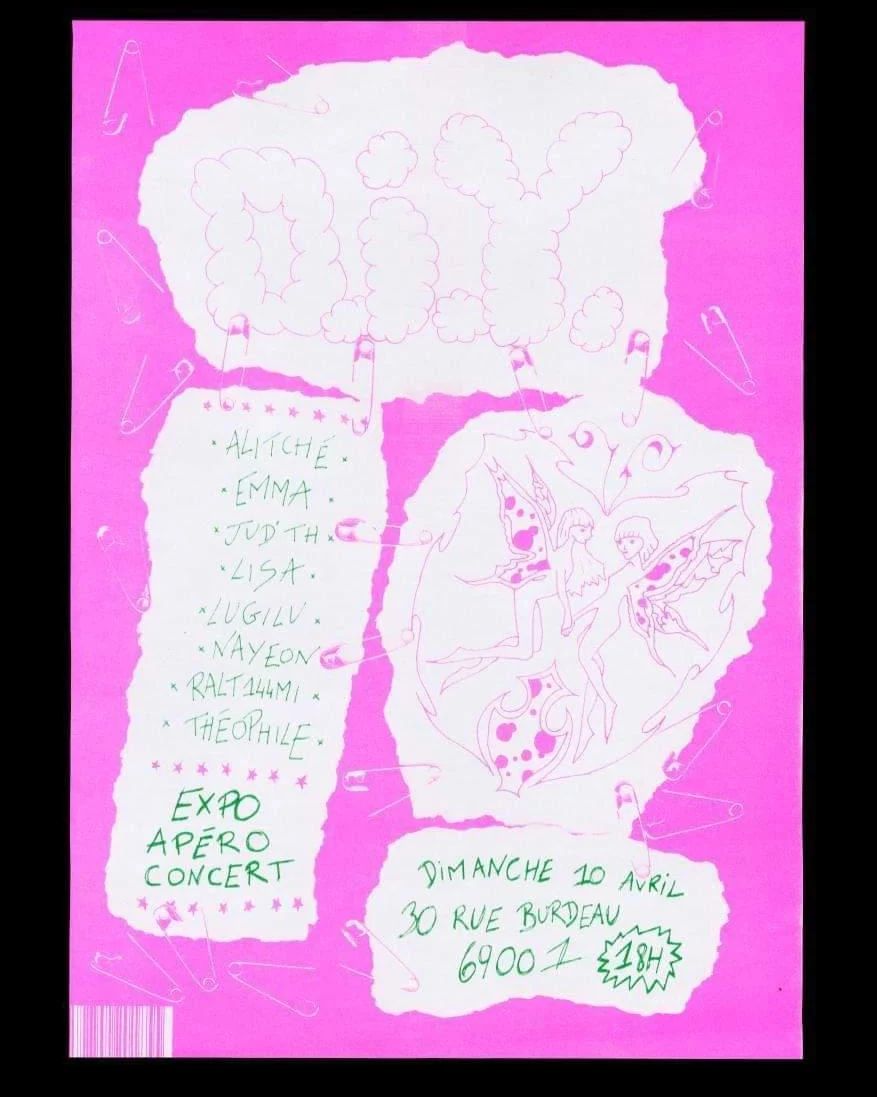 D.i.Y.
ALITCHÉ
EMMA
JUD'TH
LISA
LUGILU
NAYEON
RALT144MI
THÉOPHILE
EXPO
APÉRO
CONCERT
DIMANCHE 10 AVRIL
30 RUE BURDEAU
69001 18H